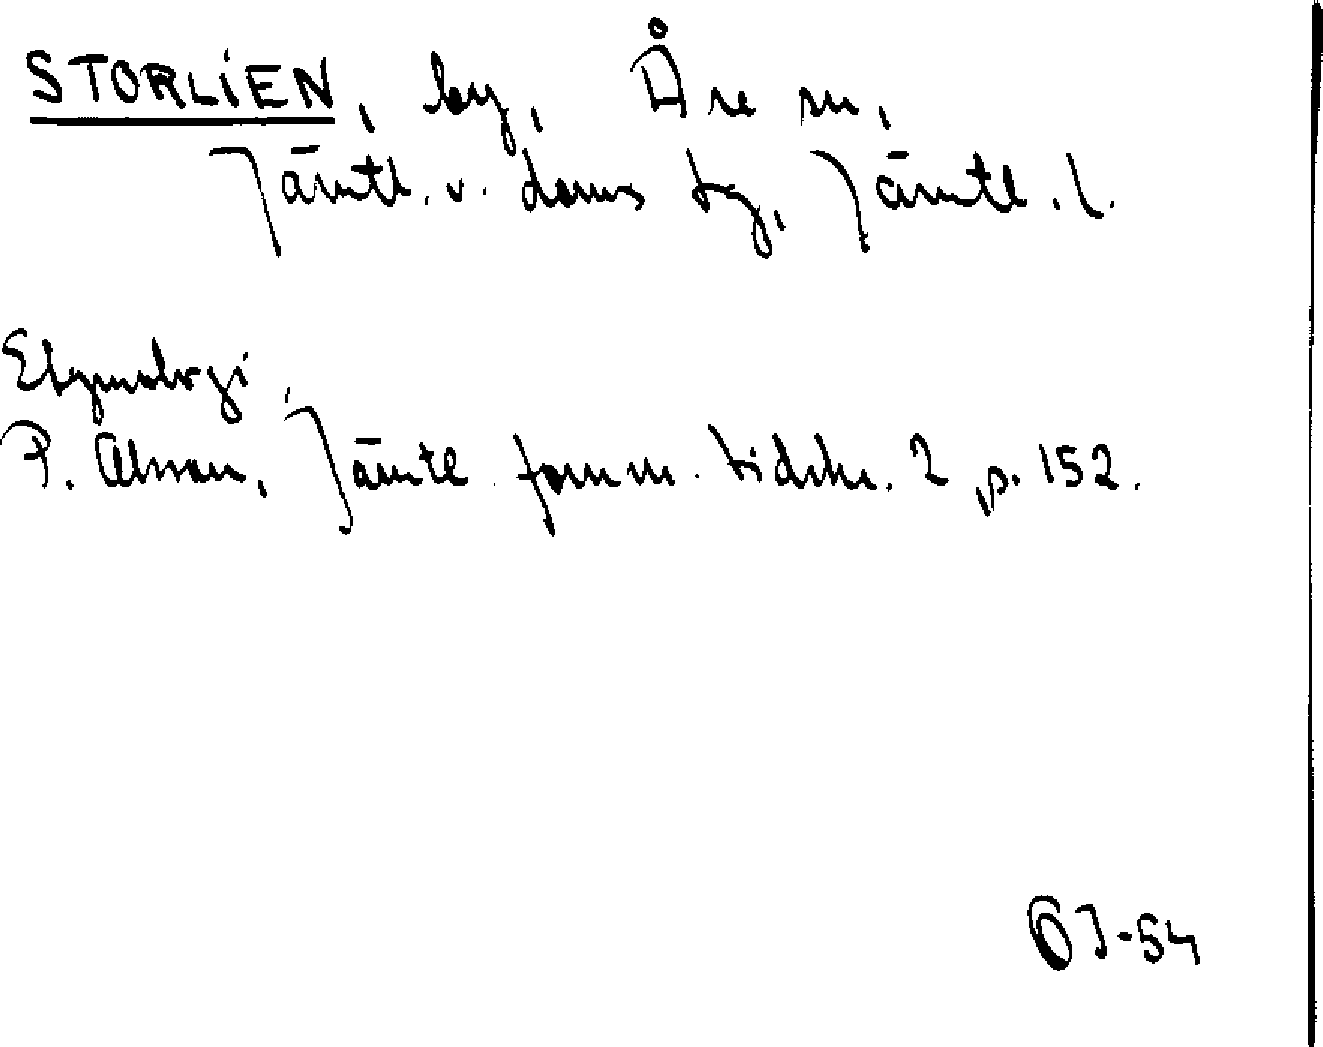 STORLIEN, by, Åre sn,
Jämtl. v. doms tg, Jämtl. l.
Etymologi,
P. Alman, Jämtl. fornm. tidskr. 2, p. 152.
OJ-54